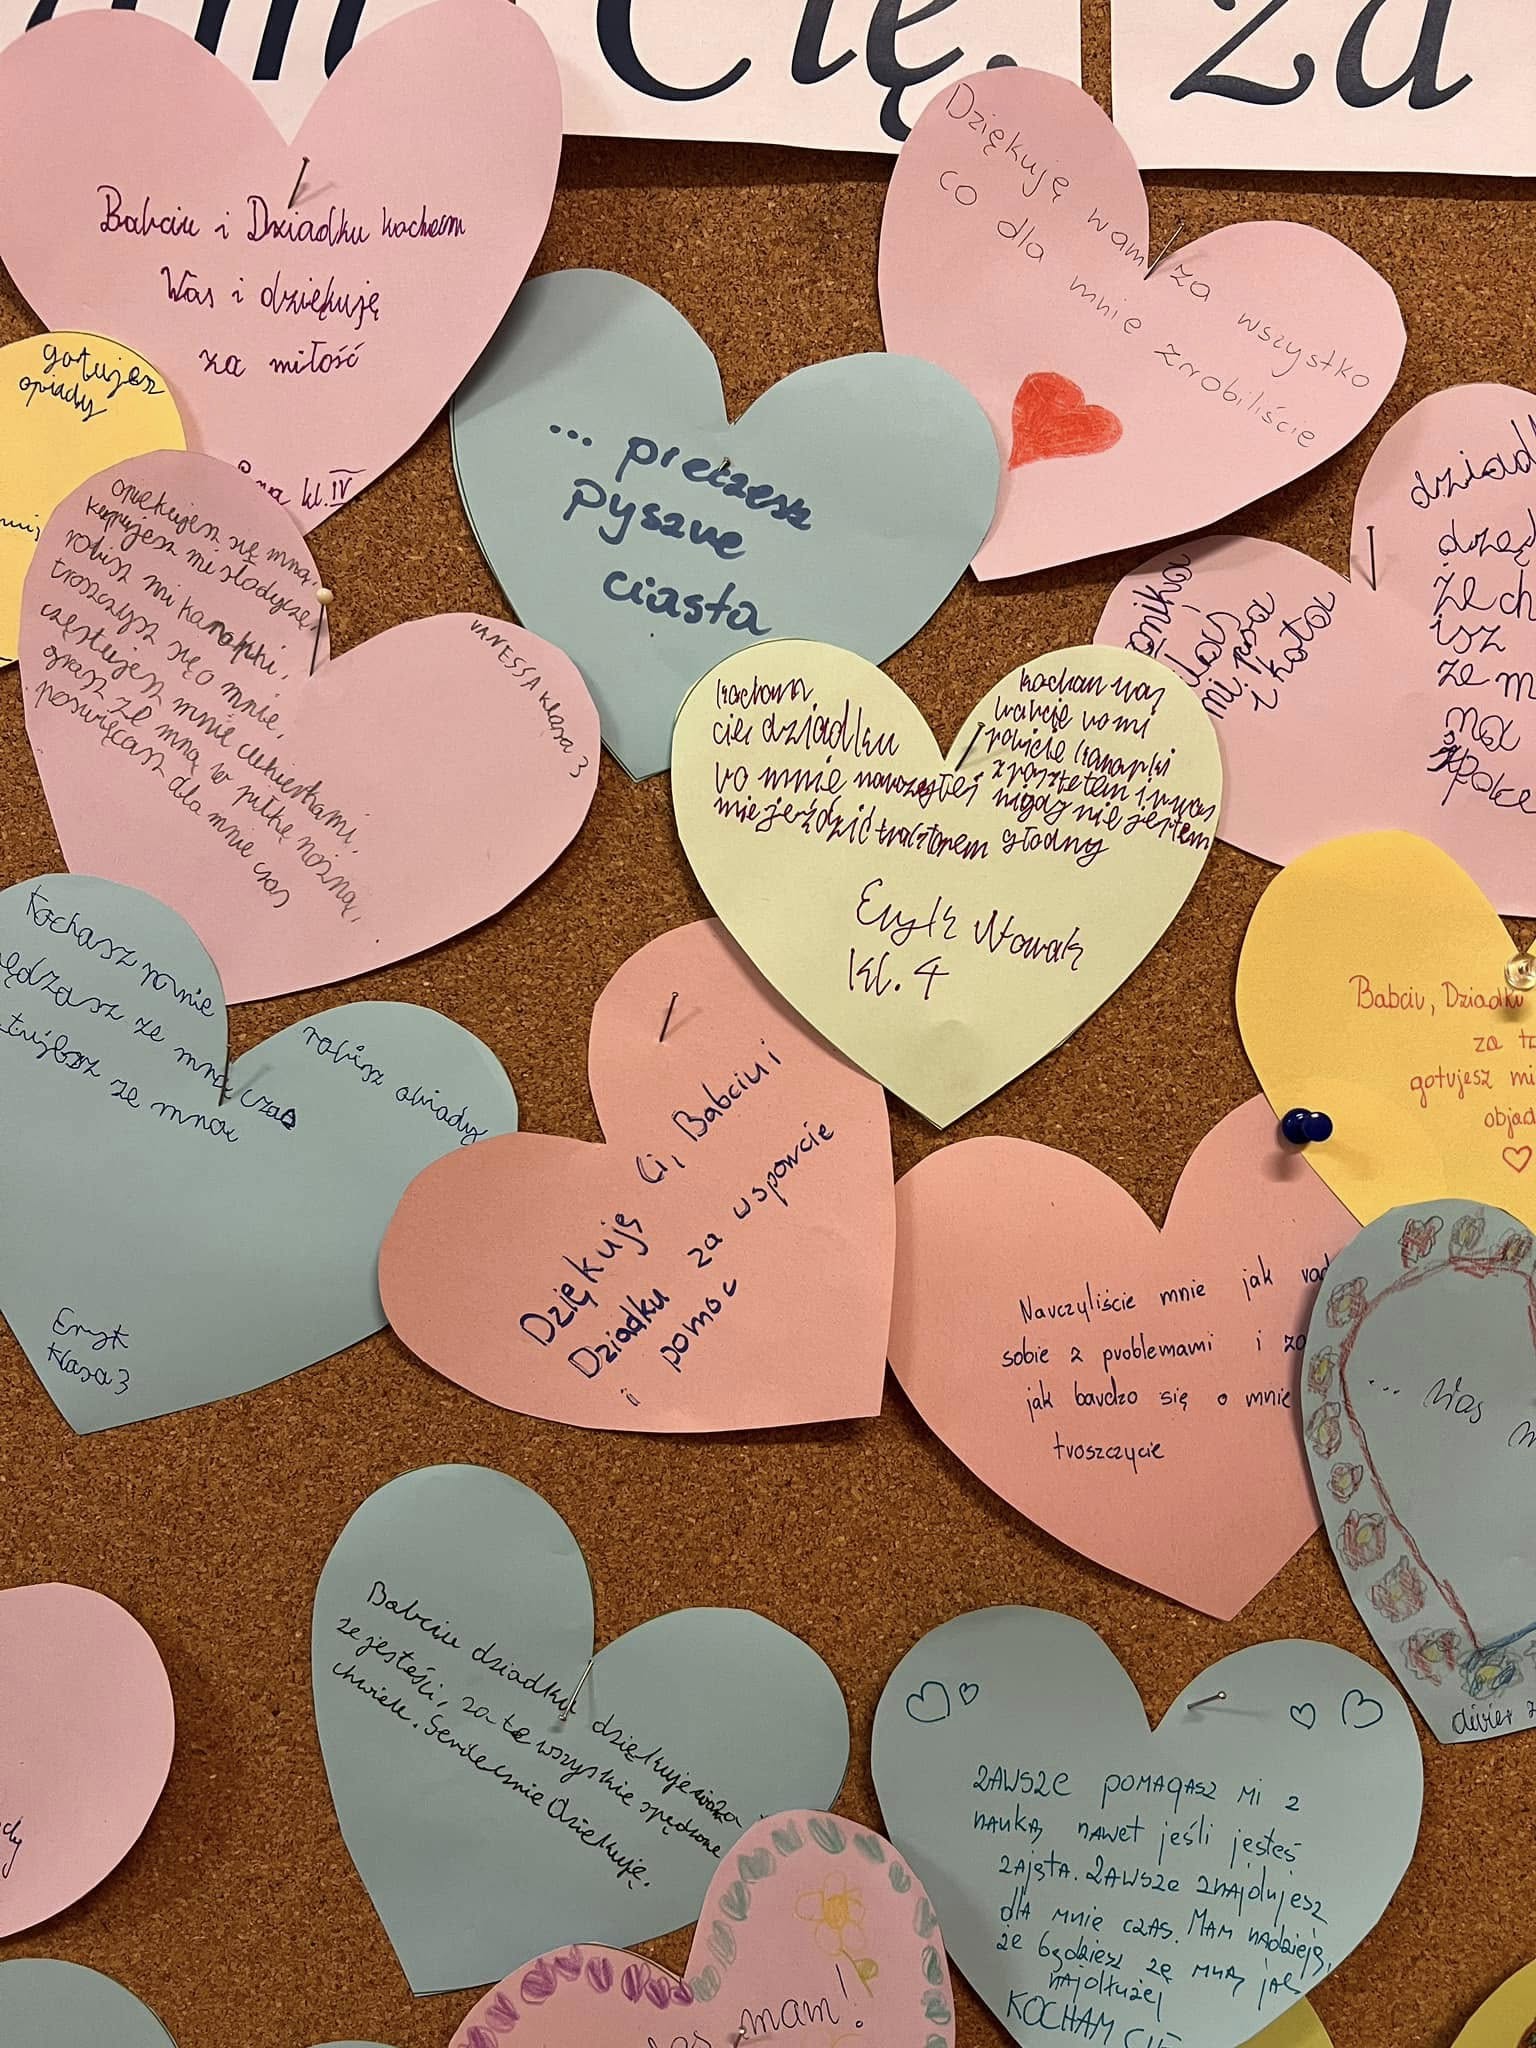 Cię, za
Babciu i Dziadku kocham
Was i dziękuję
za miłość
kl. IV
Dziękuję wam za wszystko
co dla mnie zrobiliście
gotujesz
opiady
... pieczesz
pyszne
ciasta
opiekujesz się mną,
kupujesz mi słodycze,
robisz mi kanapki,
troszczysz się o mnie,
częstujesz mnie cukierkami,
grasz ze mną w piłkę nożną,
poświęcasz dla mnie czas
VANESSA klasa 3
mi psa
i kota
kocham
cię dziadku
bo mnie nauczyłeś
jeździć traktorem
kocham was
babcię bo mi
robicie kanapki
z pasztetem i u was
nigdy nie jestem
głodny
Eryk Nowak
kl. 4
Kochasz mnie
ze mną czas
ze mną
robisz obiady
Eryk
klasa 3
Dziękuję Ci, Babciu i
Dziadku za wsparcie
i pomoc
Babciu, Dziadku
za
gotujesz mi
Nauczyliście mnie jak
sobie z problemami i
jak bardzo się o mnie
troszczycie
Babciu dziadku dziękuje
że jesteści, za te wszyskie spędzone
chwile. Serdecznie Dziekuję.
ZAWSZE POMAGASZ MI Z
NAUKĄ NAWET jeśli jesteś
ZAJĘTA. ZAWSZE ZNAJDUJESZ
dLA MNIE CZAS. MAM NAdZIEJĘ,
że będziesz ze MNĄ jAk
NAJdłużej
KOCHAM CIĘ
mam!